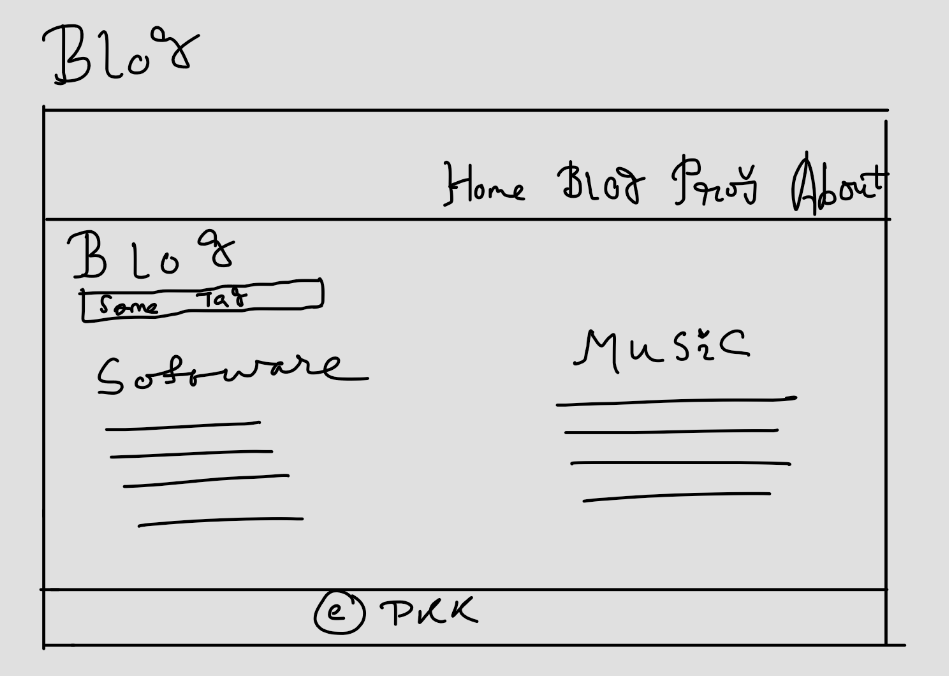 Blog
Home Blog Proj About
Blog
Some Tag
Software
Music
© PKK